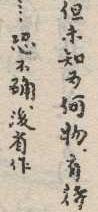 但未知为何物，有待
…恐不确，没有作